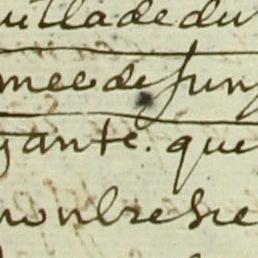 uilladedu
meedejun
gante. que
nombrese